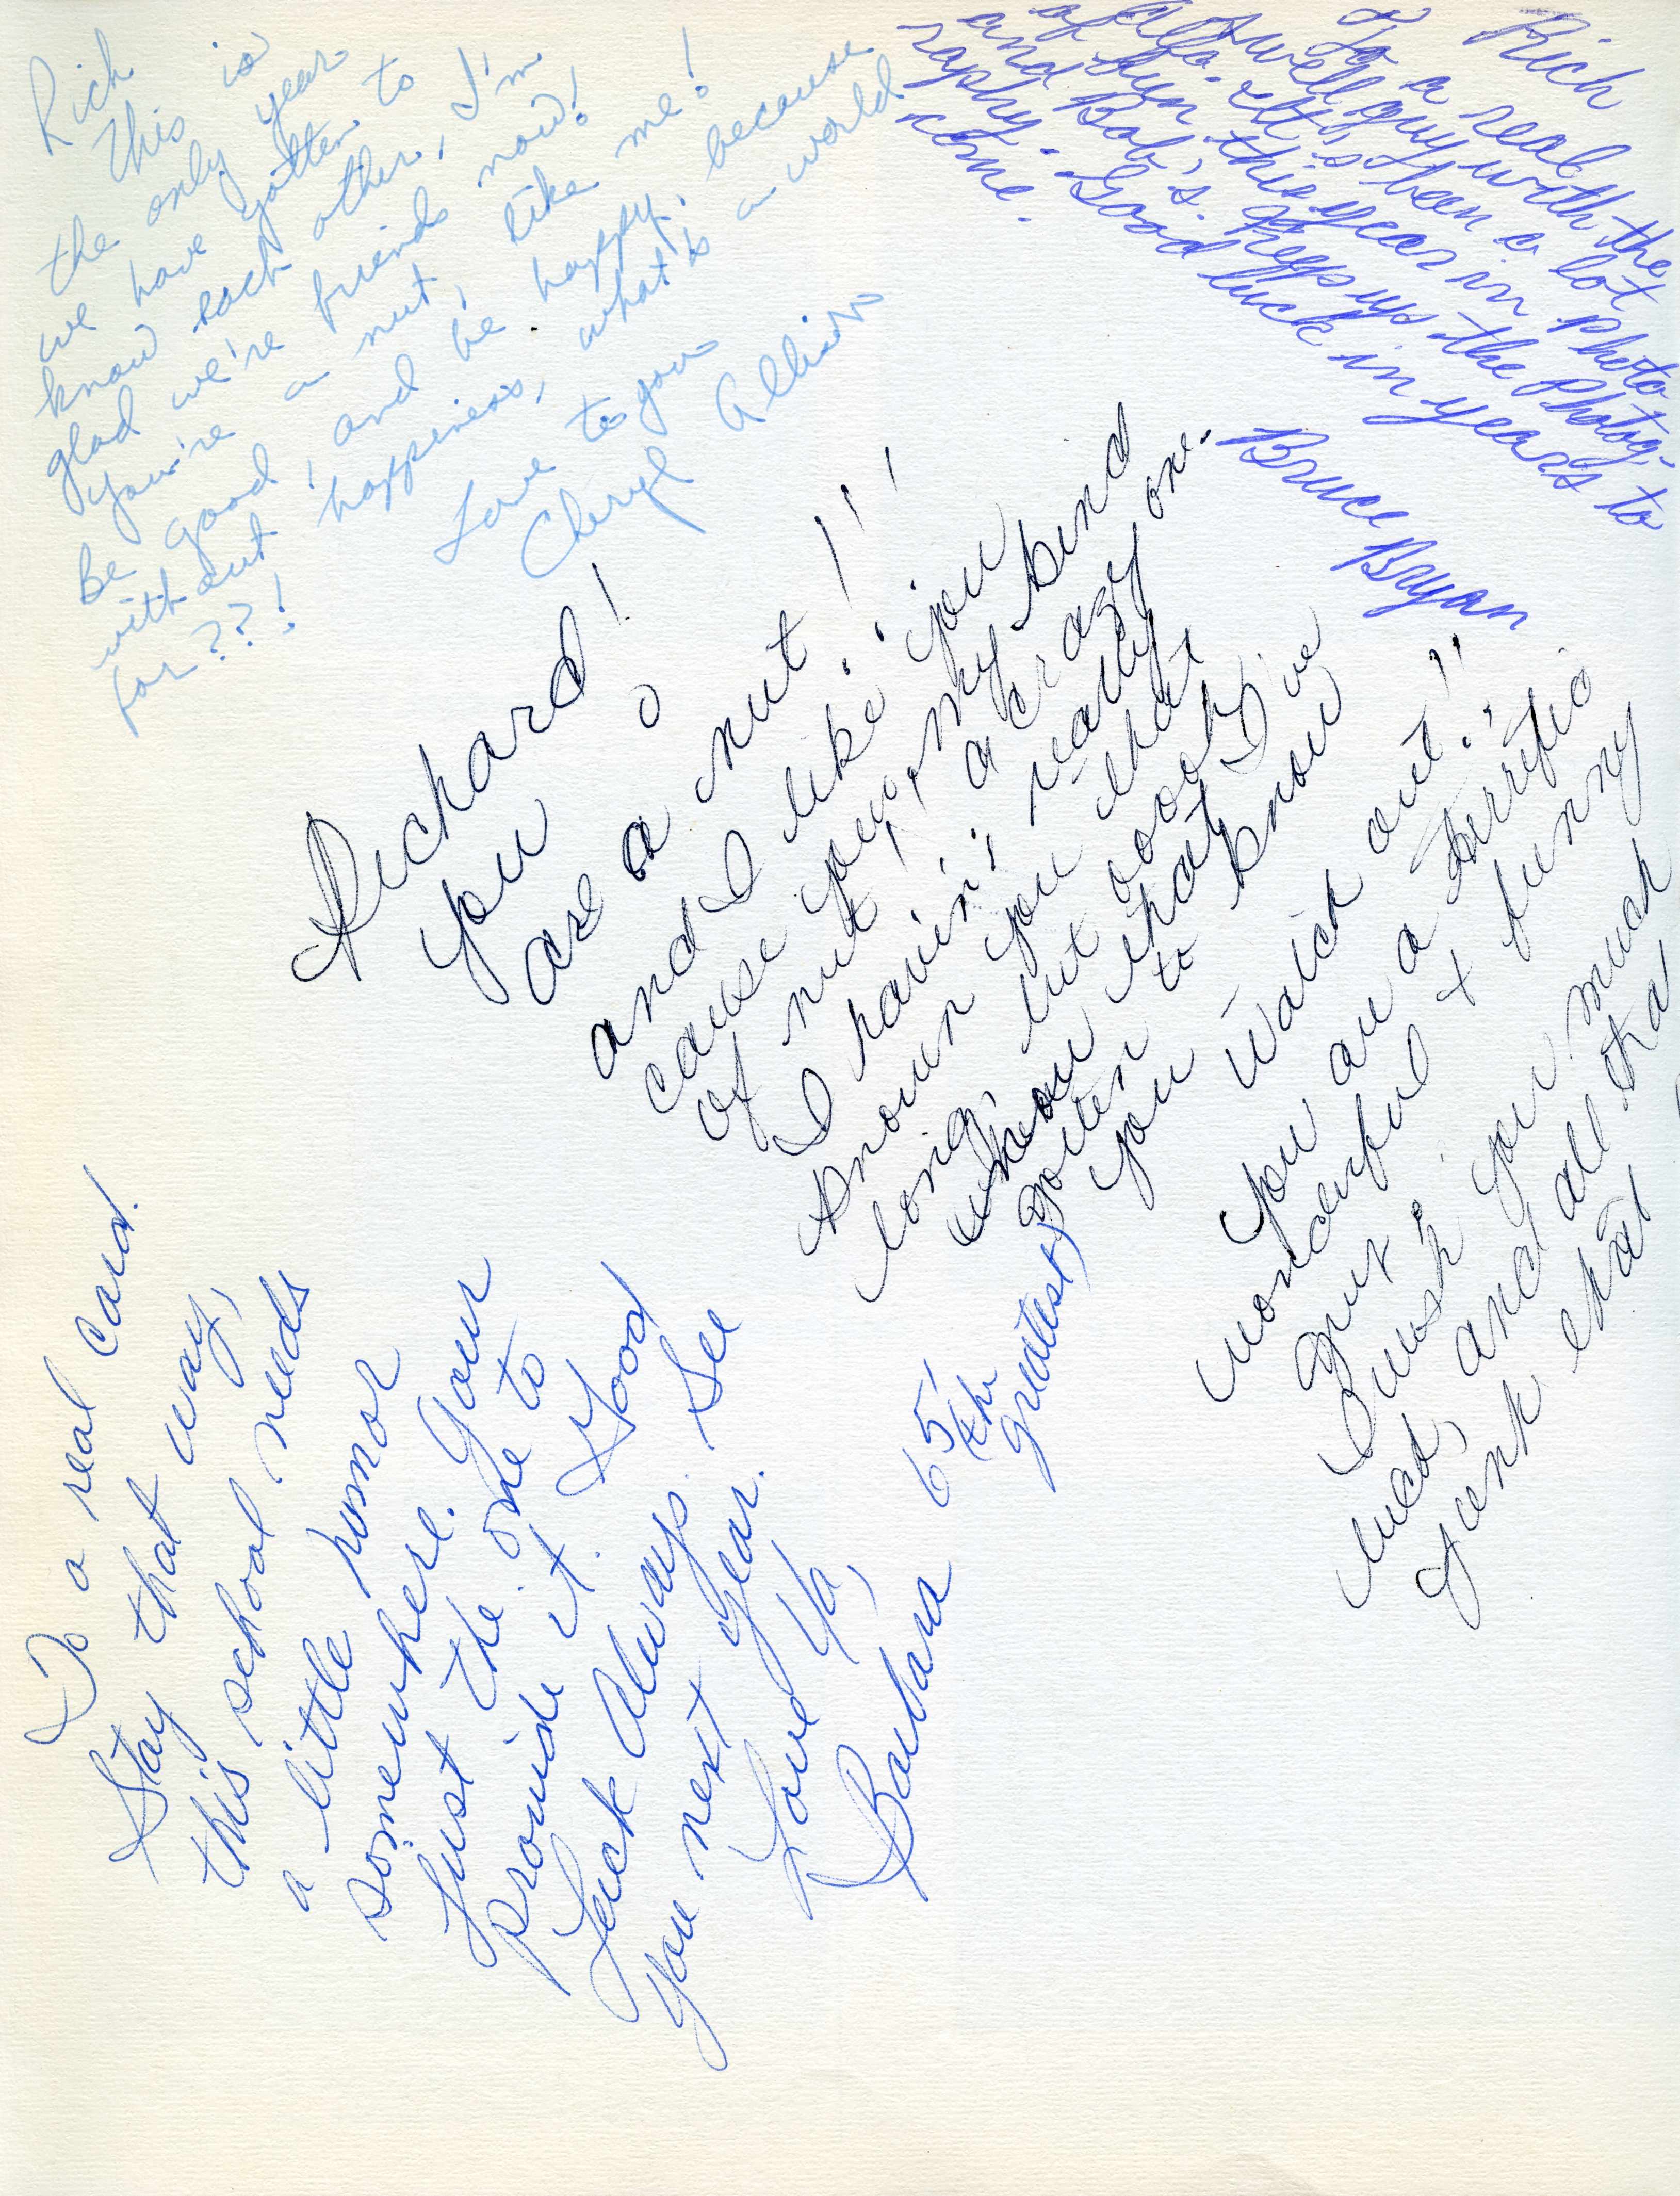 Rich
This is
the only year
we have gotten to
know each other, I'm
glad we're friends now!
You're a nut, like me!
Be good and be happy, because
without happiness, what's a world
for???!
Love to you
Cheryl Allison
Rich
To a real
swell guy with the
of Alfa. It's been a lot
of fun this year in photo
and Bob's. Keep up the photog-
raphy. Good luck in years to
come.
Bruce Bryan
Richard!
You
are a nut!!!
and I like you
cause your my kind
of nut, a crazy one.
I havin't really
known you that
long, but ooohh
when that I've
gotten to know
you watch out!!
You are a terrific
wonderful & funny
guy.
I wish you much
luck, and all tha
junk that
To a real card.
Stay that way,
this school needs
a little humor
somewhere. Your
just the one to
provide it. Good
Luck Always. See
you next year.
Love Ya,
Barbara 65'
(the
greatest)